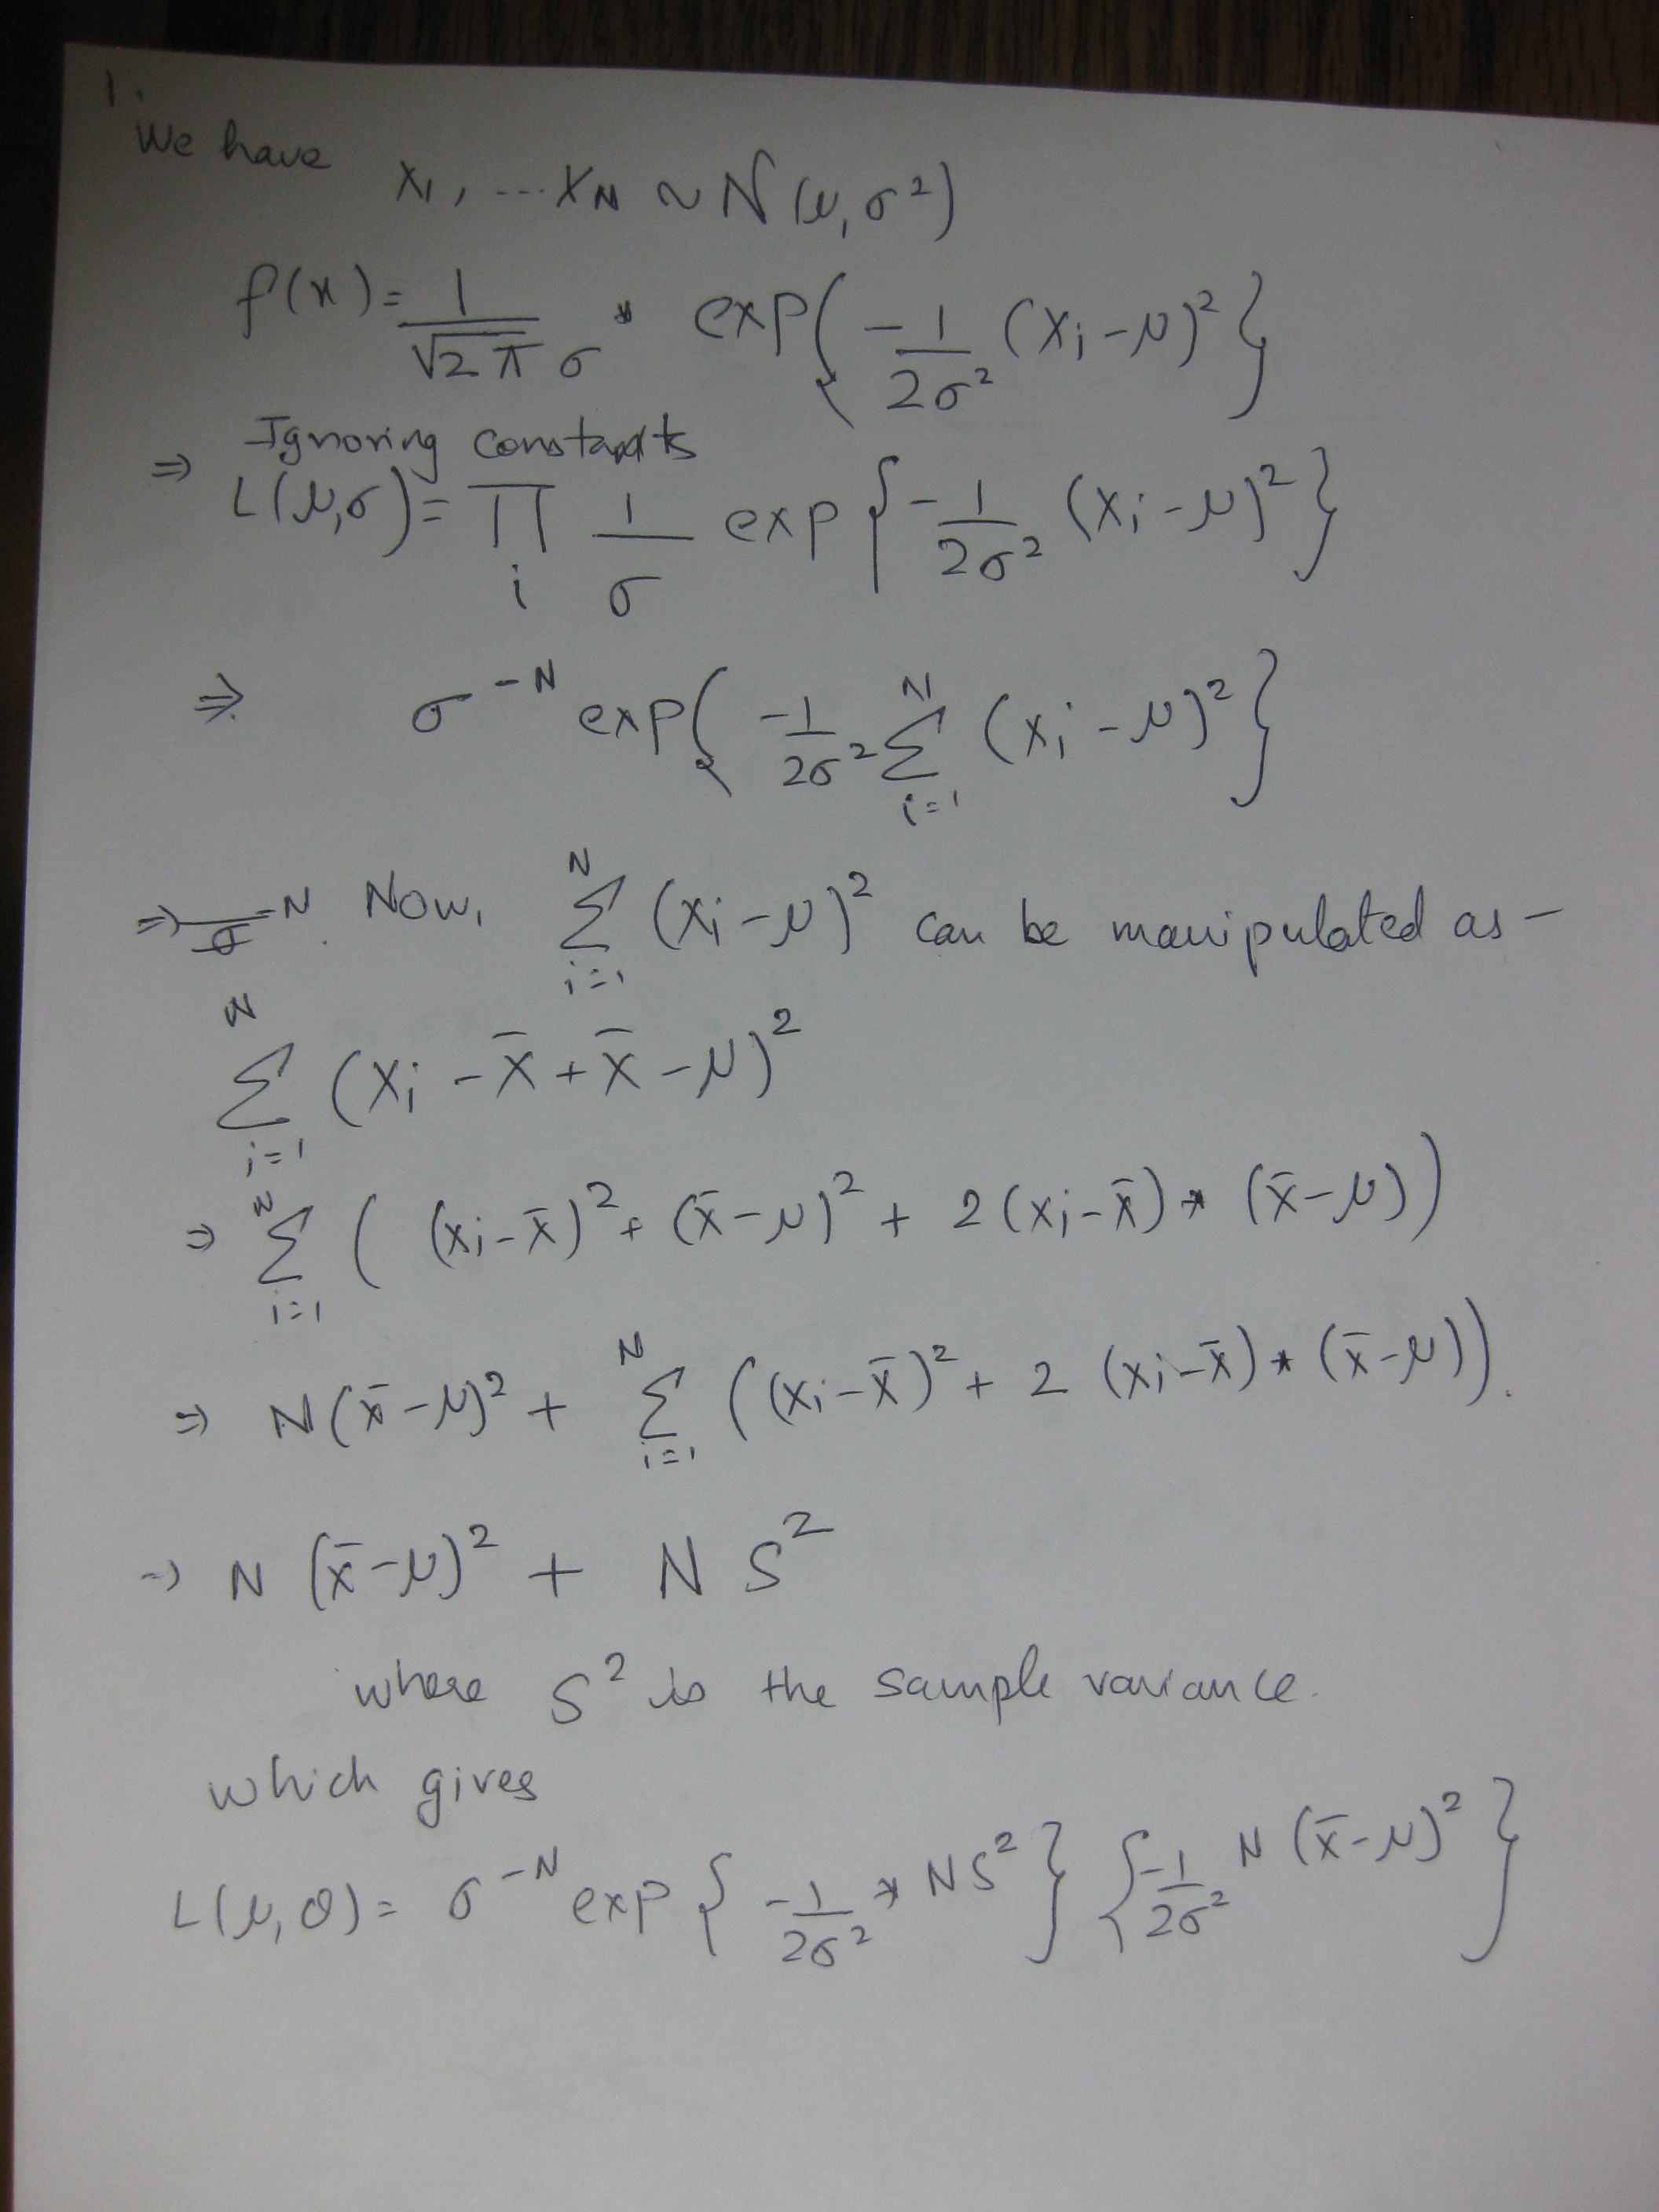 1.
We have
x₁, ... x_N ~ N(μ, σ²)
f(x) = 1/(√2π σ) * exp{ -1/2σ² (x_i - μ)² }
Ignoring constants
⇒ L(μ,σ) = ∏_i 1/σ exp{ -1/2σ² (x_i - μ)² }
⇒ σ^-N exp{ -1/2σ² Σ_{i=1}^N (x_i - μ)² }
⇒ Now, Σ_{i=1}^N (x_i - μ)² can be manipulated as -
Σ_{i=1}^N (x_i - x̄ + x̄ - μ)²
⇒ Σ_{i=1}^N ( (x_i - x̄)² + (x̄ - μ)² + 2(x_i - x̄) * (x̄ - μ) )
⇒ N(x̄ - μ)² + Σ_{i=1}^N ( (x_i - x̄)² + 2 (x_i - x̄) * (x̄ - μ) ).
⇒ N (x̄ - μ)² + N S²
where S² is the sample variance.
which gives
L(μ, σ) = σ^-N exp{ -1/2σ² * NS² } { -1/2σ² N (x̄ - μ)² }